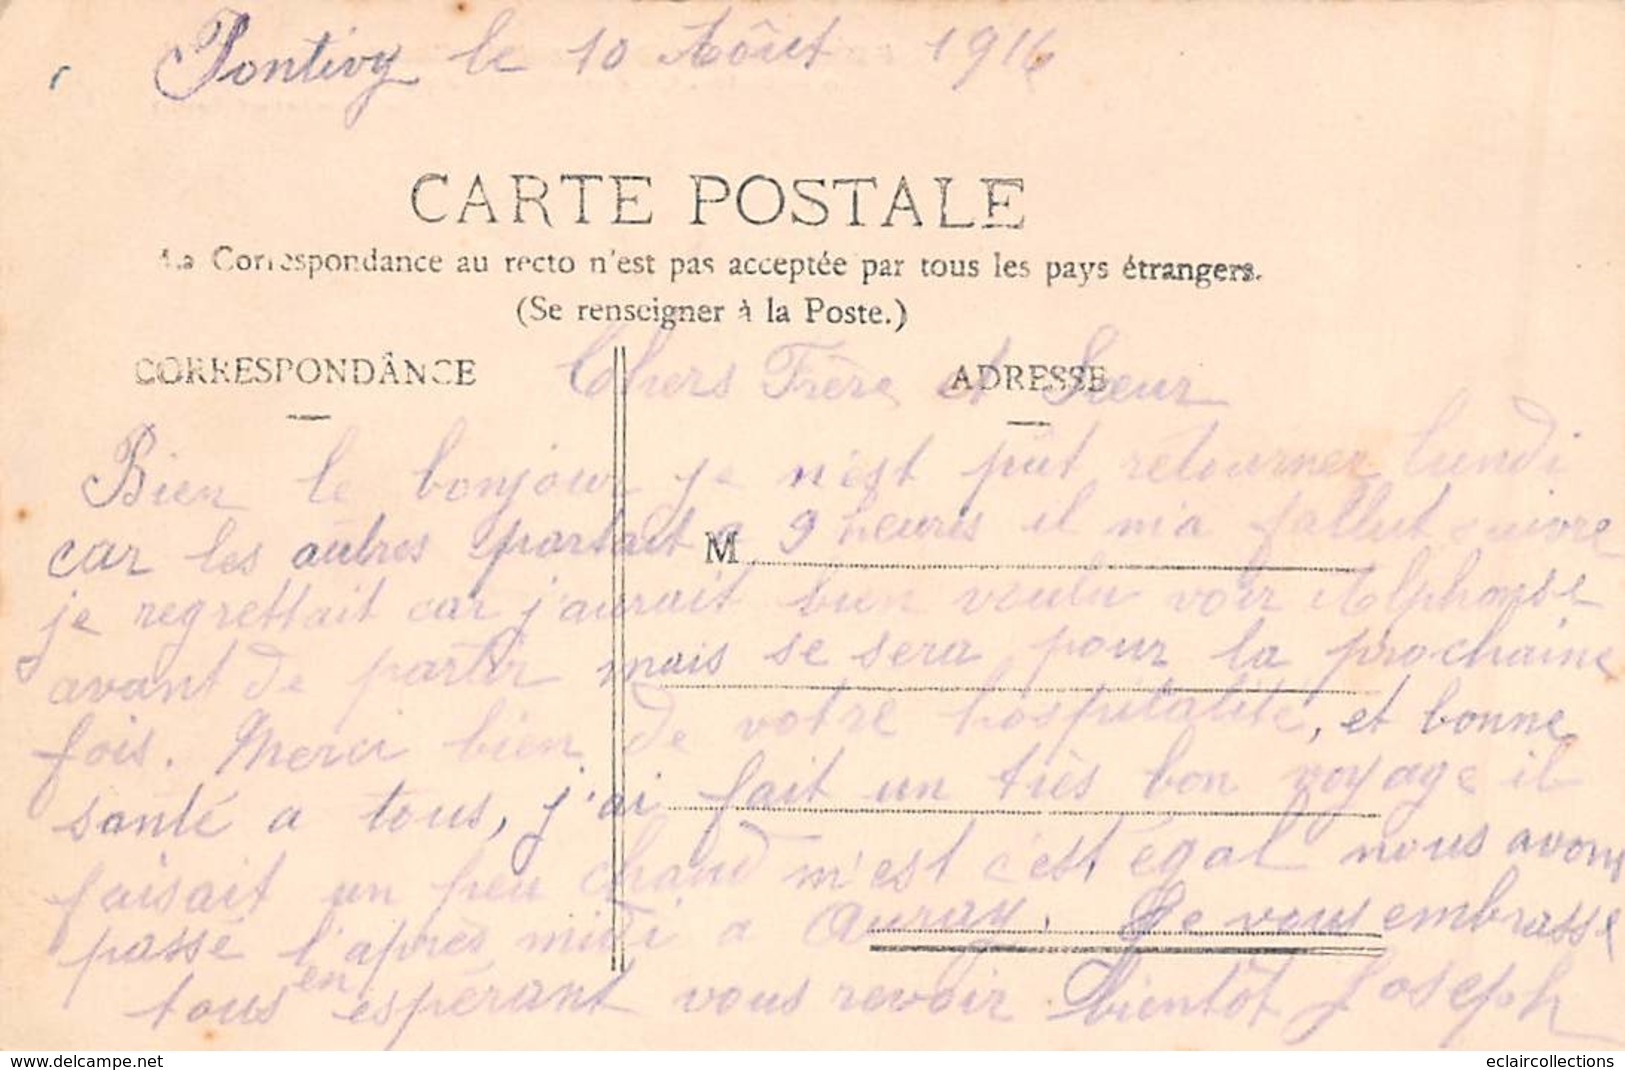 Pontivy le 10 Aôut 1916
CARTE POSTALE
La Correspondance au recto n'est pas acceptée par tous les pays étrangers.
(Se renseigner à la Poste.)
CORRESPONDANCE
ADRESSE
Chers Frère et Sœur
Bien le bonjour je n'est put retourner lundi
car les autres partait a 9 heures il m'a fallut suivre
M
je regrettait car j'aurait bien voulu voir Alphonse
avant de partir mais se sera pour la prochaine
fois. Merci bien de votre hospitalité, et bonne
santé a tous, j'ai fait un très bon voyage il
faisait un peu chaud m'est c'est égal nous avons
passé l'après midi a Auray. Je vous embrasse
tous en espérant vous revoir bientôt Joseph
www.delcampe.net
eclaircollections